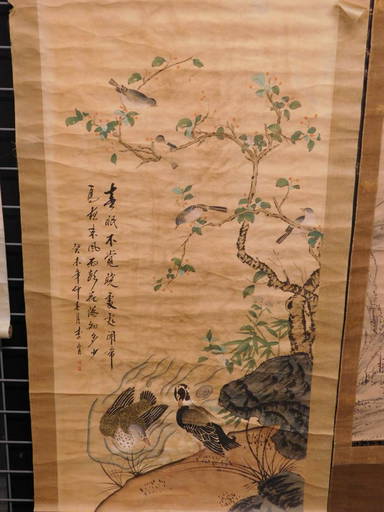 春眠不覺曉處處聞啼
鳥夜来風雨聲花落知多少
癸未年仲春月李